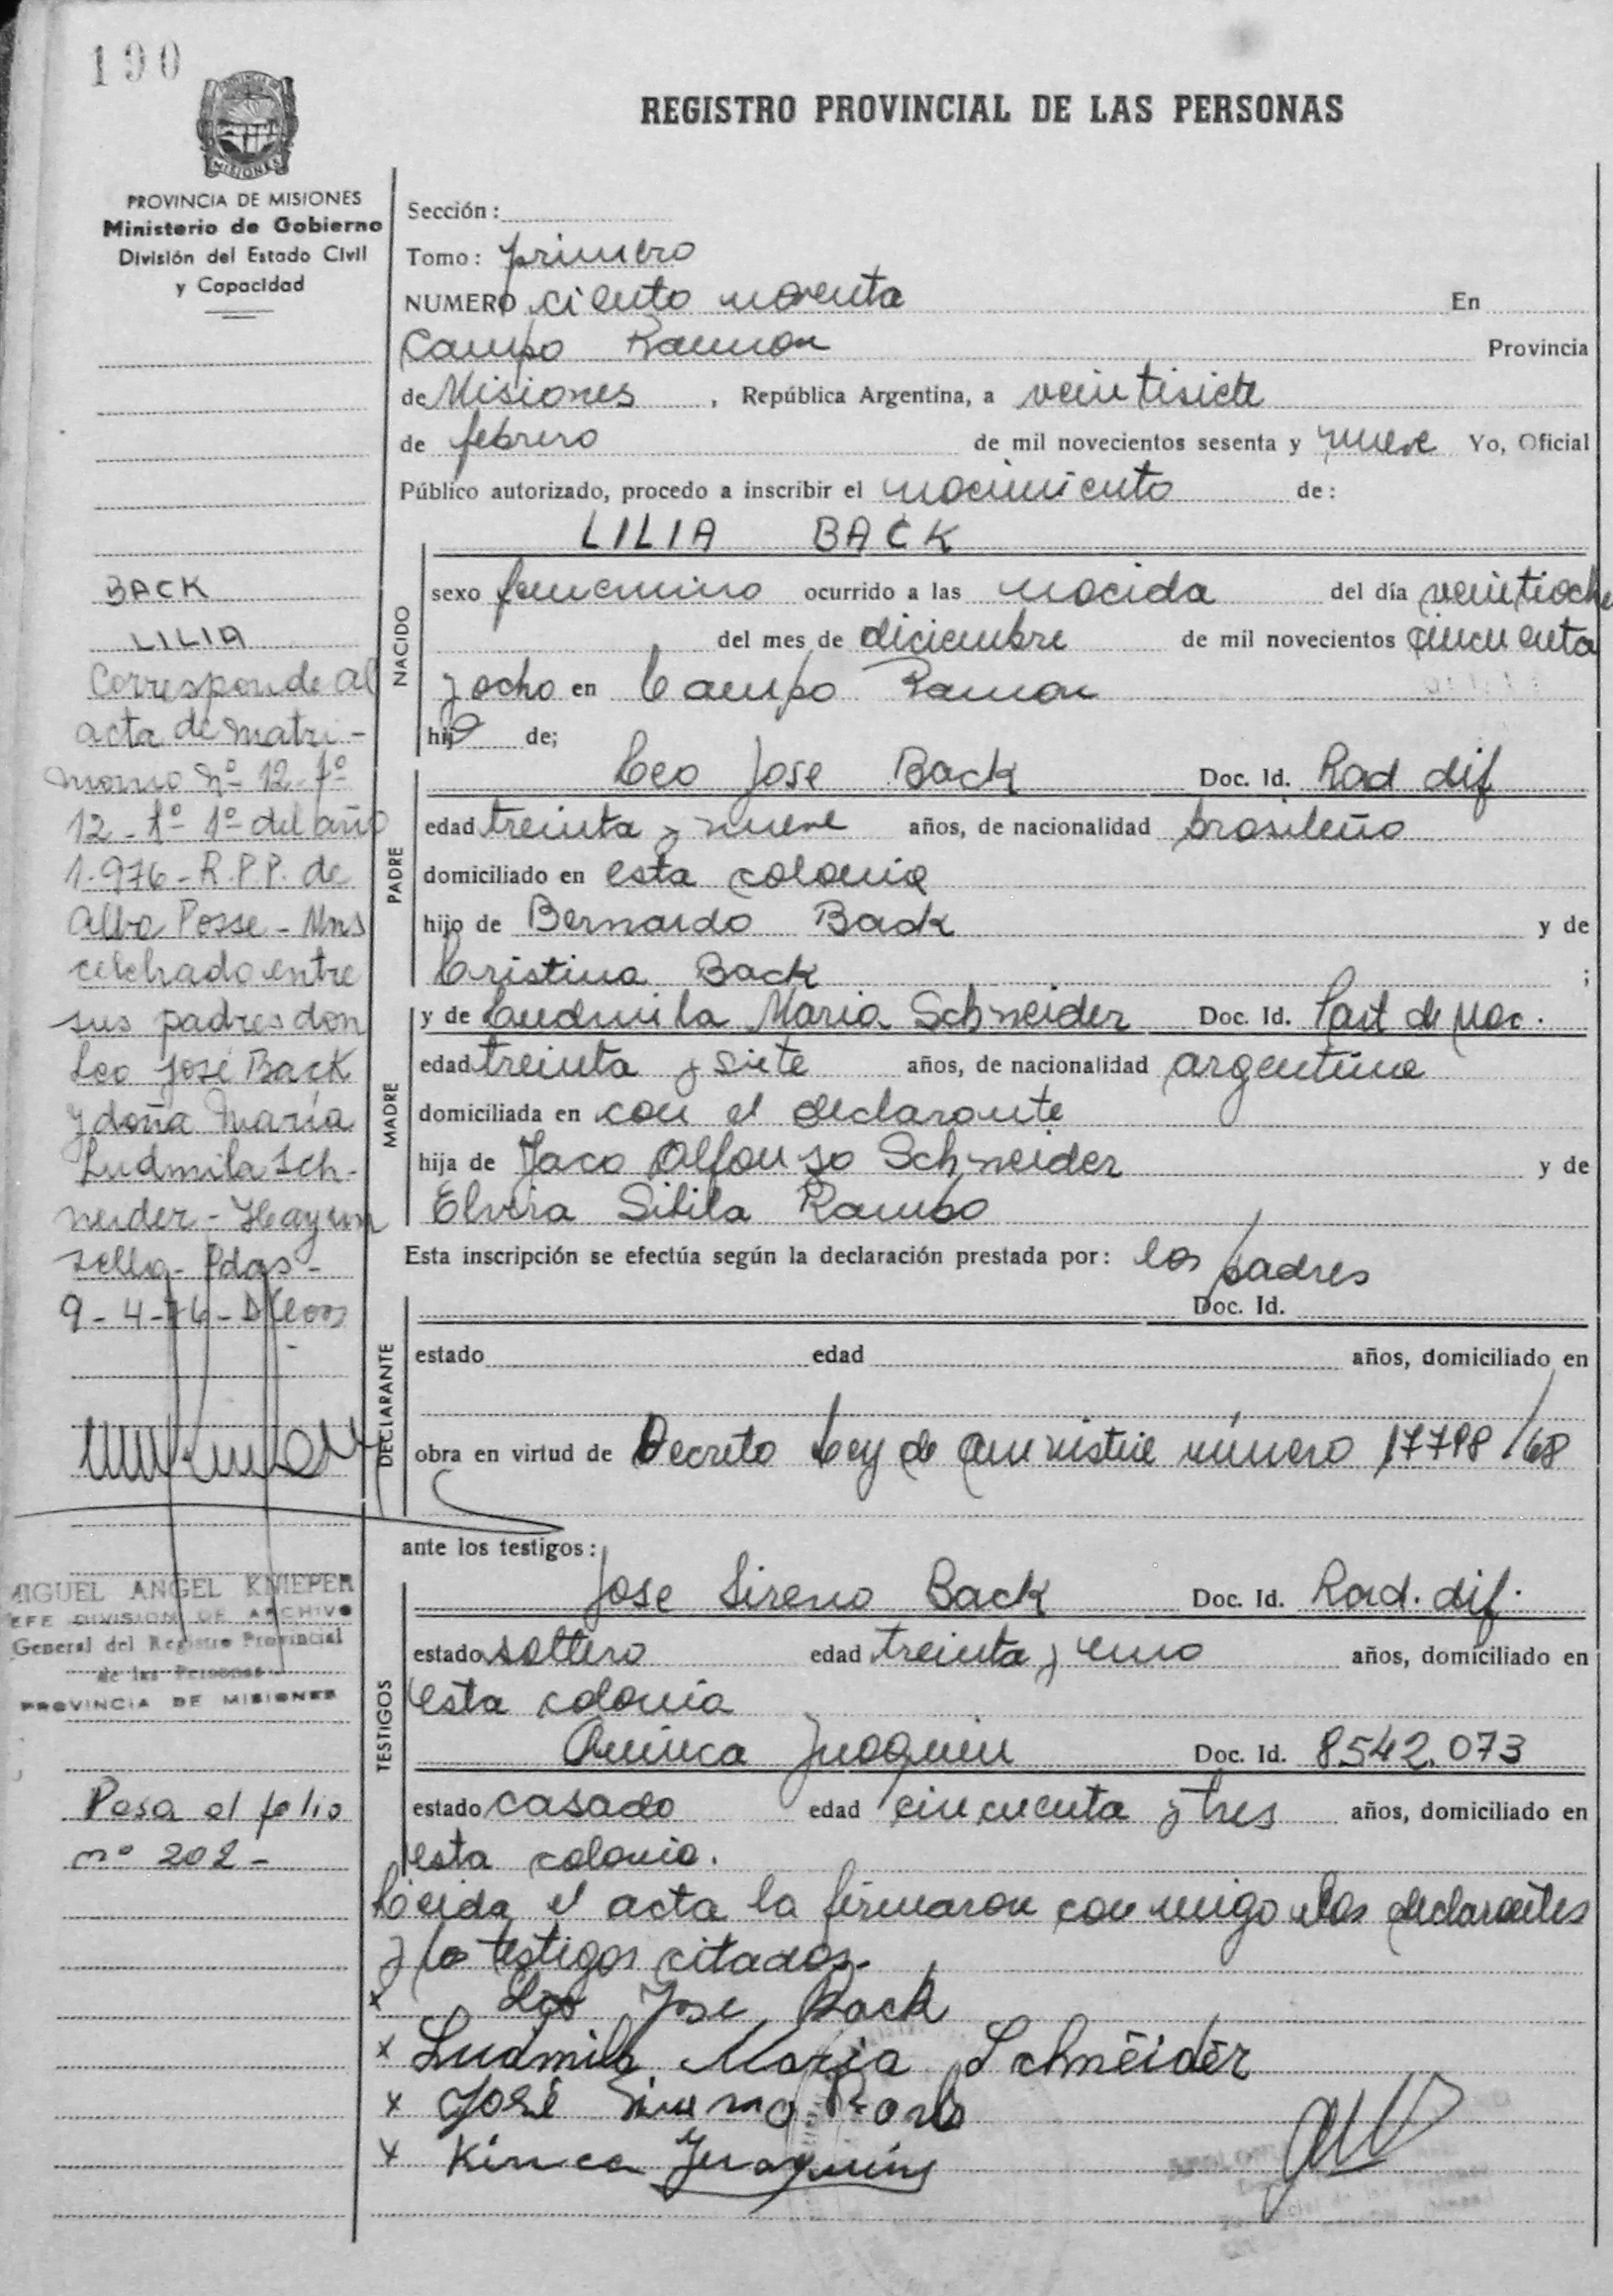 190
PROVINCIA DE MISIONES
Ministerio de Gobierno
División del Estado Civil
y Capacidad
REGISTRO PROVINCIAL DE LAS PERSONAS
Sección:
Tomo: primero
NUMERO ciento noventa En
Campo Ramon Provincia
de Misiones, República Argentina, a veintisiete
de febrero de mil novecientos sesenta y nueve Yo, Oficial
Público autorizado, procedo a inscribir el nacimiento de:
LILIA BACK
NACIDO
sexo femenino ocurrido a las nacida del día veintiocho
del mes de diciembre de mil novecientos cincuenta
y ocho en Campo Ramon
hija de;
PADRE
Leo Jose Back Doc. Id. Rad dif
edad treinta y nueve años, de nacionalidad brasileño
domiciliado en esta colonia
hijo de Bernardo Back y de
Cristina Back ;
MADRE
y de Ludmila Maria Schneider Doc. Id. Part de Nac.
edad treinta y siete años, de nacionalidad argentina
domiciliada en con el declarante
hija de Jaco Alfonso Schneider y de
Elvira Sibila Rambo
Esta inscripción se efectúa según la declaración prestada por: los padres
DECLARANTE
Doc. Id.
estado edad años, domiciliado en
obra en virtud de Decreto Ley de amnistia número 17798/68
ante los testigos:
TESTIGOS
Jose Sireno Back Doc. Id. Rad. dif.
estado soltero edad treinta y uno años, domiciliado en
esta colonia
Quinca Juaquin Doc. Id. 8542.073
estado casado edad cincuenta y tres años, domiciliado en
esta colonia.
Leida el acta la firmaron conmigo los declarantes
y los testigos citados.
x Leo Jose Back
x Ludmila Maria Schneider
x José Back
x Kinca Juaquin
BACK
LILIA
Corresponde al
acta de matri-
monio Nº 12 - Fº
12 - Tº 1º del año
1.976 - R.P.P. de
Alba Posse - Mns
celebrado entre
sus padres don
Leo José Back
y doña María
Ludmila Sch-
neider - Hay un
sello - Pdas -
9-4-76 -
MIGUEL ANGEL KNIEPER
JEFE DIVISION DE ARCHIVO
General del Registro Provincial
de las Personas
PROVINCIA DE MISIONES
Pasa al folio
nº 202 -